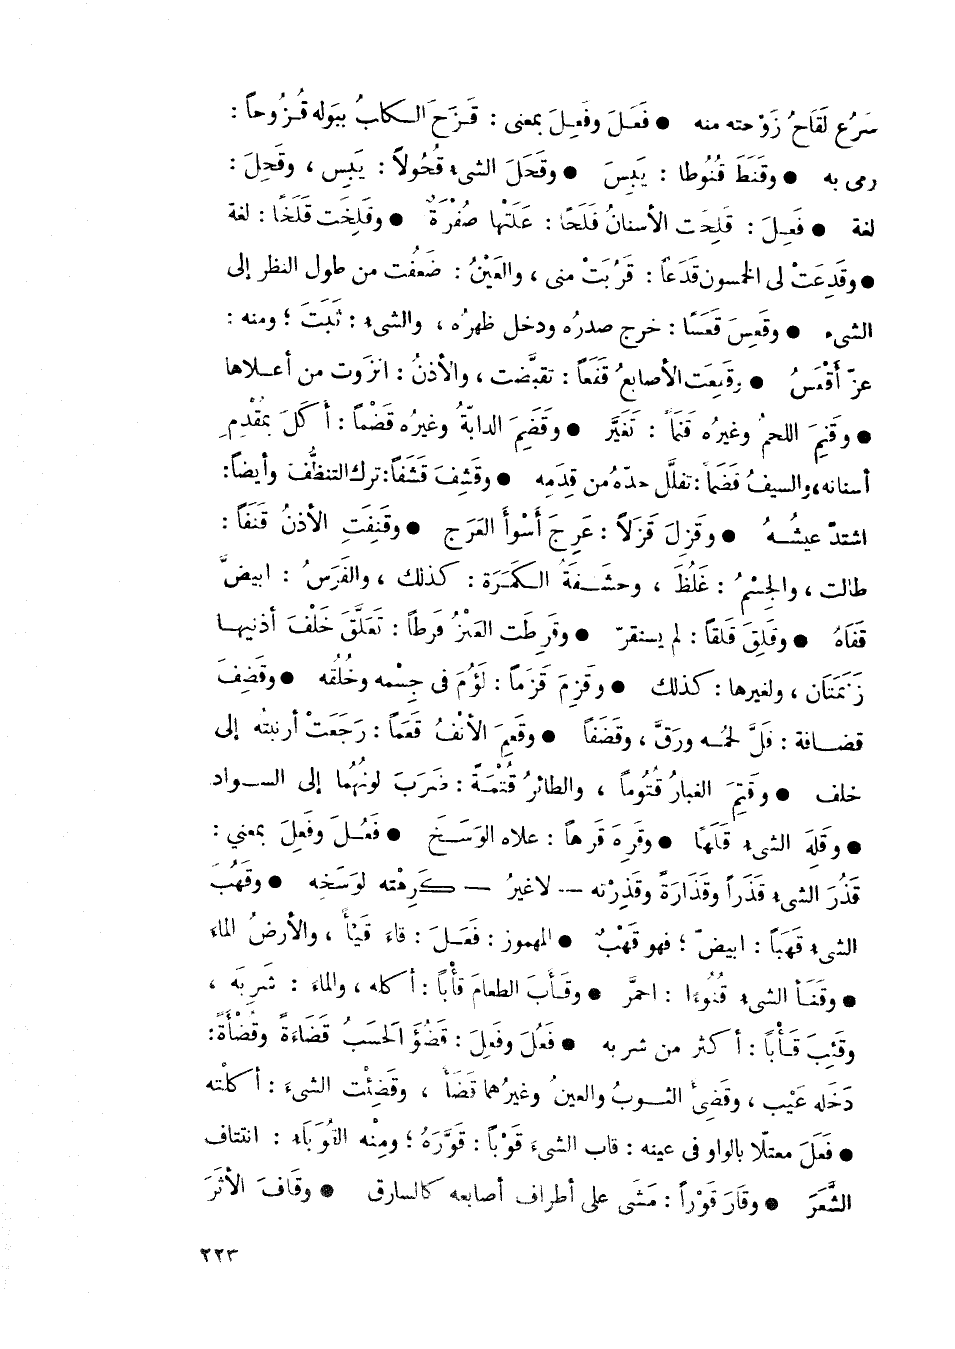 سَرُع لَقَاحُ زَوْجته منه ● فَعَلَ وفَعِلَ بمعنى : قَزَحَ الكلبُ ببَوله قُزُوحاً :
رمى به ● وقَنَطَ قُنُوطا : يَئِسَ ● وقَحَلَ الشىء قُحُولاً : يَبِس ، وقَحِلَ :
لغة ● فَعِلَ : قَلِحَت الأسنانُ قَلَحًا : عَلَتْها صُفْرَةٌ ● وقَلِخَت قَلَخًا : لغة
● وقَدِعَتْ لى الخمسون قَدَعاً : قَرُبَتْ منى ، والعَيْنُ : ضَعُفت من طول النظر إلى
الشىء ● وقَعِسَ قَعَسًا : خرج صدرُه ودخل ظهرُه ، والشىء : ثَبَتَ ؛ ومنه :
عزّ أَقْعَسُ ● وقَفِعَت الأصابعُ قَفَعاً : تقبَّضت ، والأذنُ : انزَوت من أعلاها
● وقَنِمَ اللحمُ وغيرُه قَنَماً : تَغَيَّر ● وقَضِمَ الدابّةُ وغيرُه قَضْماً : أكَلَ بمُقْدِمِ
أسنانه، والسيفُ قَضَماً : تفلَّل حدّهُ من قِدَمِه ● وقَشِفَ قَشَفاً : ترك التنظُّف وأيضاً:
اشتدّ عيشُهُ ● وقَزِلَ قَزَلاً : عَرِجَ أَسْوأَ العَرَج ● وقَنِفَتِ الأذنُ قَنَفاً :
طالت ، والجِسْمُ : غَلُظَ ، وحشَفَةُ الكَمَرَة : كذلك ، والفَرَسُ : ابيضَّ
قفَاهُ ● وقَلِقَ قَلَقاً : لم يستقرّ ● وقَرِطَت العَنْزُ قَرطاً : تَعَلَّقَ خَلْفَ أذنيها
زَنَمَتَان ، ولغيرها : كذلك ● وقَزِمَ قَزَماً : لَؤُمَ فى جِسْمه وخُلُقه ● وقَضِفَ
قضافة : قَلَّ لحمُه ورَقَّ ، وقَضَفاً ● وقَعِمَ الأنْفُ قَعَماً : رَجَعَتْ أرنبتُه إلى
خلف ● وقَتِمَ الغبارُ قُتُوماً ، والطائرُ قُتْمَةً : ضَرَبَ لونُهُما إلى السواد
● وقَلِهَ الشىء قَلَهًا ● وقَرِهَ قَرهاً : علاه الوَسَخَ ● فَعُلَ وفَعِلَ بمعنى :
قَذُرَ الشىء قَذَراً وقَذَارَةً وقَذِرْته — لاغيرُ — كَرِهْته لوَسَخِه ● وقَهُبَ
الشىء قَهَبَاً : ابيضّ ؛ فهو قَهْبٌ ● المهموز : فَعَلَ : قاء قَيْأً ، والأرضُ الماءَ
● وقَنَأ الشىء قُنُوءًا : احمرَّ ● وقَأَبَ الطعامَ قأْباً : أكله ، والماءَ : شَرِبَه ،
وقَئِبَ قَأْباً : أكثر من شربه ● فَعُلَ وفَعِلَ : قَضُؤَ الحَسَبُ قَضَاءَةً وقُضْأَةً:
دَخَله عَيْب ، وقَضِئَ الثوبُ والعينُ وغيرُهما قَضَأ ، وقَضِئْت الشىءَ : أكلْته
● فَعَلَ معتلّا بالواو فى عينه : قاب الشىءَ قَوْباً : قوَّرَهُ ؛ ومِنْه القُوَبَاء : انتتاف
الشَّعَرَ ● وقَارَ قَوْراً : مَشَى على أطراف أصابعه كالسارق ● وقَافَ الأثَرَ
٢٢٣